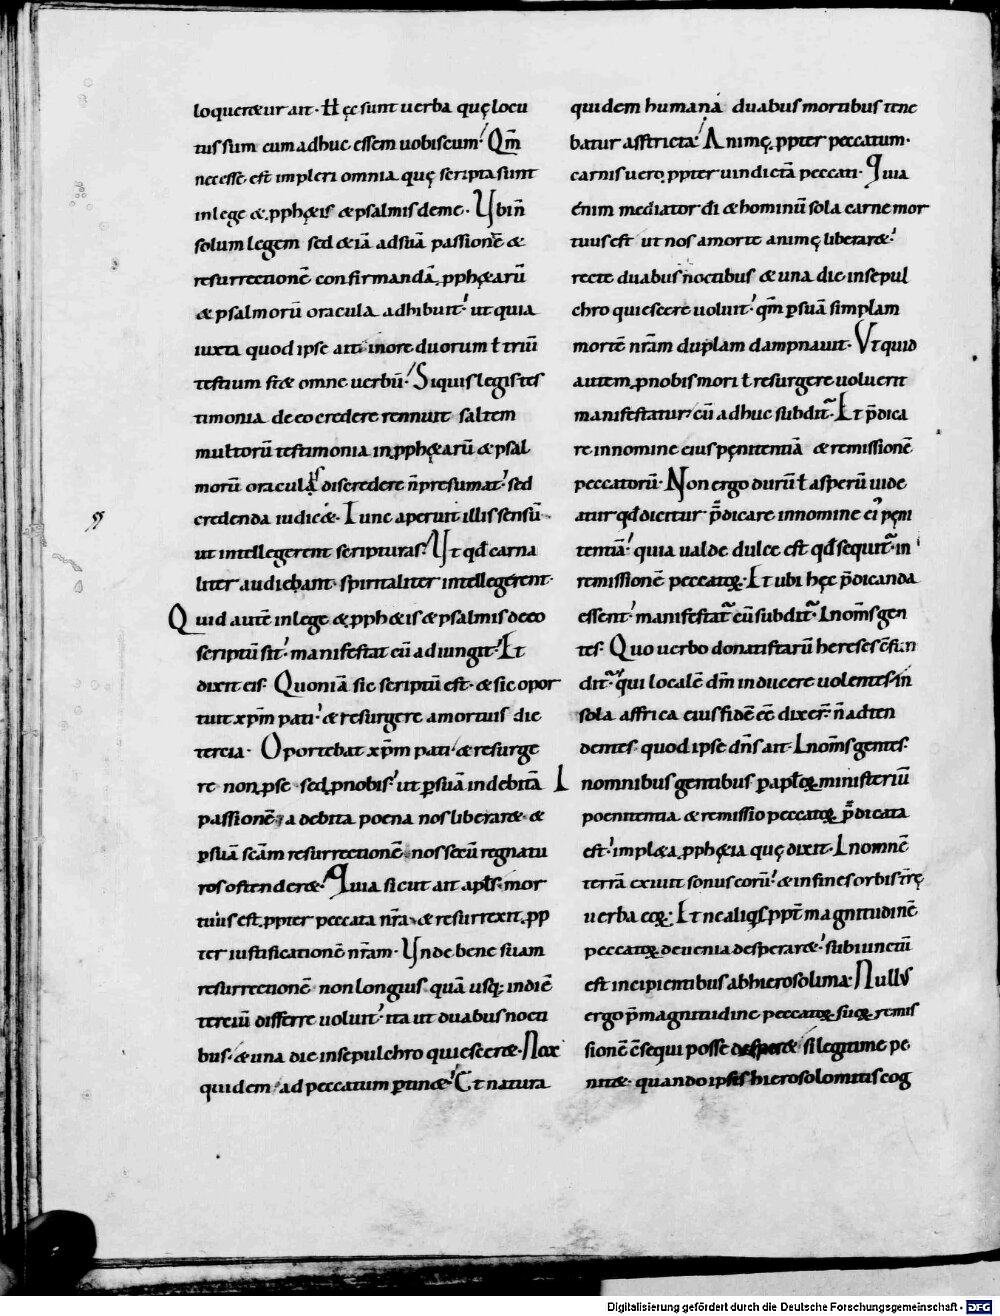 loqueretur ait· Hęc sunt uerba quę locu
tus sum cum adhuc essem uobiscum· Qm̄
necesse est impleri omnia quę scripta sunt
in lege & pph&is & psalmis de me· Vbi ñ
solum legem sed & iā ad suā passionē &
resurrectionē confirmandā pph&arū
& psalmorū oracula adhibuit· ut quia
iuxta quod ipse ait in ore duorum ł triū
testium stat omne uerbū· Siquis legis tes
timonia de eo credere rennuit saltem
multorū testimonia in pph&arū & psal
morū oraculis discredere ñ presumat· sed
credenda iudic&· Tunc aperuit illis sensū·
ut intellegerent scripturas· Vt qđ carna
liter audiebant· spiritaliter intellegerent·
Quid autē in lege & pph&is & psalmis de eo
scriptū sit· manifestat cū adiungit· Et
dixit eis· Quoniā sic scriptū est· & sic opor
tuit xpm̄ pati· & resurgere a mortuis die
tercia· Oportebat xpm̄ pati· & resurge
re non p se· sed p nobis· ut p suā indebitā
passionē· a debita poena nos liberar& &
p suā scām resurrectionē· nos secū regnatu
ros ostender&· Quia sicut ait apls· mor
tuus est ppter peccata nr̄a· & resurrexit pp
ter iustificationē nr̄am· Vnde bene suam
resurrectionē non longius quā usq; in diē
terciū differre uoluit· ita ut duabus nocti
bus· & una die in sepulchro quiescer&· Nox
quidem· ad peccatum ptin&· Et natura
quidem humana duabus mortibus tene
batur asstricta· Animę ppter peccatum·
carnis uero ppter uindictā peccati· Quia
enim mediator đi & hominū sola carne mor
tuus est ut nos a morte animę liberar&·
recte duabus noctibus & una die in sepul
chro quiescere uoluit· qm̄ p suā simplam
mortē nr̄am duplam dampnauit· Vt quid
autem p nobis mori ł resurgere uoluerit
manifestatur cū adhuc subdit̄· Et p̄dica
re in nomine eius pęnitentiā & remissionē
peccatorū· Non ergo durū ł asperū uide
atur qđ dicitur p̄dicare in nomine ei' pęni
tentiā· quia ualde dulce est qđ sequit̄· in
remissionē peccatoꝝ· Et ubi hęc p̄dicanda
essent· manifestat̄ cū subdit̄· In om̄s gen
tes· Quo uerbo donatistarū hereses
dit̄· qui localē dm̄ inducere uolentes· in
sola affrica eius fidē eē dixer̄· ñ adten
dentes· quod ipse dn̄s ait· In om̄s gentes·
In omnibus gentibus p aptoꝝ ministeriū
poenitentia & remissio peccatoꝝ p̄dicata
est· impl&a pph&ia quę dixit· In omnē
terrā exiuit sonus eorū· & in fines orbis tr̄ę
uerba eoꝝ· Et ne aliqs ppt̄ magnitudinē
peccatoꝝ de uenia desperar&· subiunctū
est incipientibus ab hierosolima· Nullus
ergo p̄ magnitudine peccatoꝝ suoꝝ remis
sionē sequi posse desper& si legitime pe
nit&· quando ipsis hierosolomitis cog
Digitalisierung gefördert durch die Deutsche Forschungsgemeinschaft - DFG